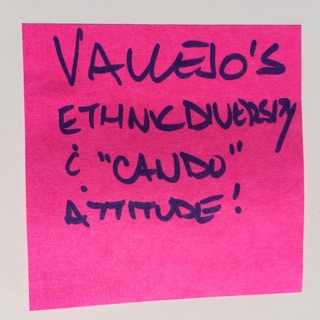 VALLEJO'S
ETHNIC DIVERSITY
& "CAN DO"
ATTITUDE!